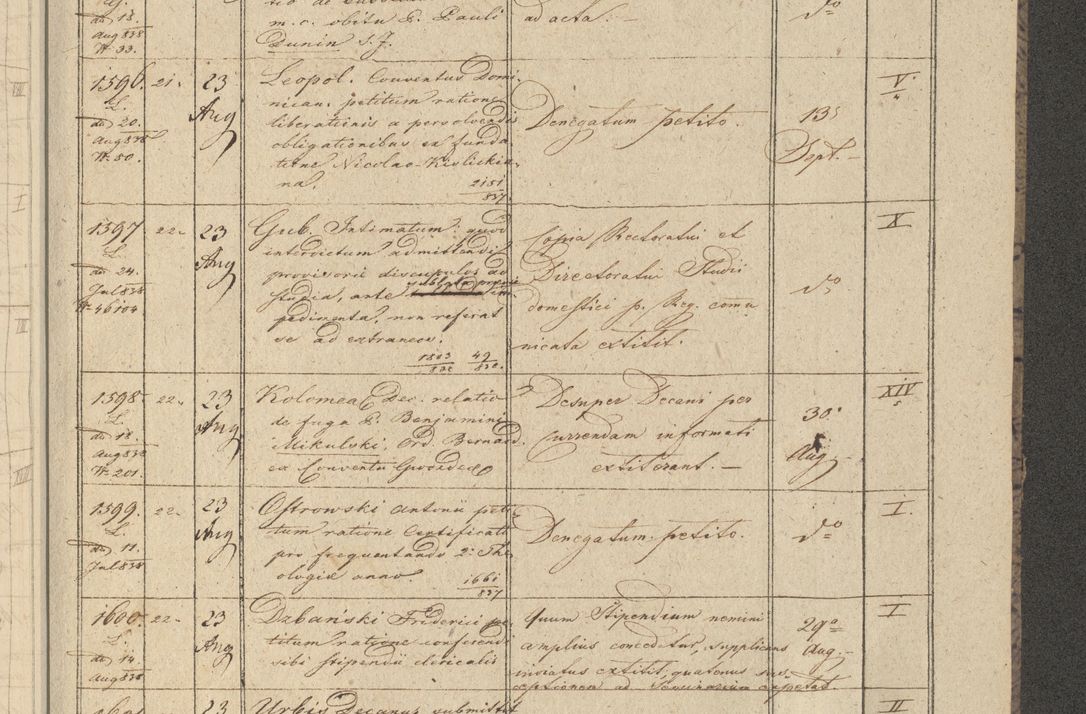 m. c. obitu P. Pauli
Dunin S.J.
ad acta. —
do
18.
Aug 838
N. 33.
1596.
L.
do 20.
Aug 838
N. 50.
21.
23
Aug
Leopol. Conventus Domi-
nican. petitum ratione
liberationis a persolvendis
obligationibus ex funda-
tione Nicolao-Kislickia-
na.
2151
837
Denegatum petito.
13
Sept. —
V.
4
1597
L.
do 24.
Jul 838
N. 46104
22.
23
Aug
Gub. Intimatum: quod
interdictum admittendi
provisorii discipulos ad
studia, ante sublata praevie im-
pedimenta, non referat
se ad extraneos.
1503
49
Copia Rectoratui et
Directoratui Studii
domestici p. Reg. comu
nicata extitit.
do
X
1598
L.
do 18.
Aug 838
N. 201.
22.
23
Aug
Kolomea Dec. relatio
de fuga P. Benjamini
Mikulski, Ord. Bernard.
ex Conventu Gwozdec
Desuper Decani per
currendam informati
extiterant. —
30.
Aug
XIV
5
1599.
L.
do 11.
Jul 838
22.
23
Aug
Ostrowski Antonii peti-
tum ratione Certificati
pro frequentando 2. The-
ologiæ anno.
1661
837
Denegatum petito.
do
I.
1600.
L.
do 14.
Aug 838
22.
23
Aug
Dzbański Friderici pe-
titum ratione conferendi
sibi stipendii clericalis
Quum Stipendium nemini
amplius concedatur, supplicans
inviatus extitit, quatenus sus-
ceptionem ad Seminarium expetat
29a
Aug. —
I
23
Urbis Decanus submittit
II